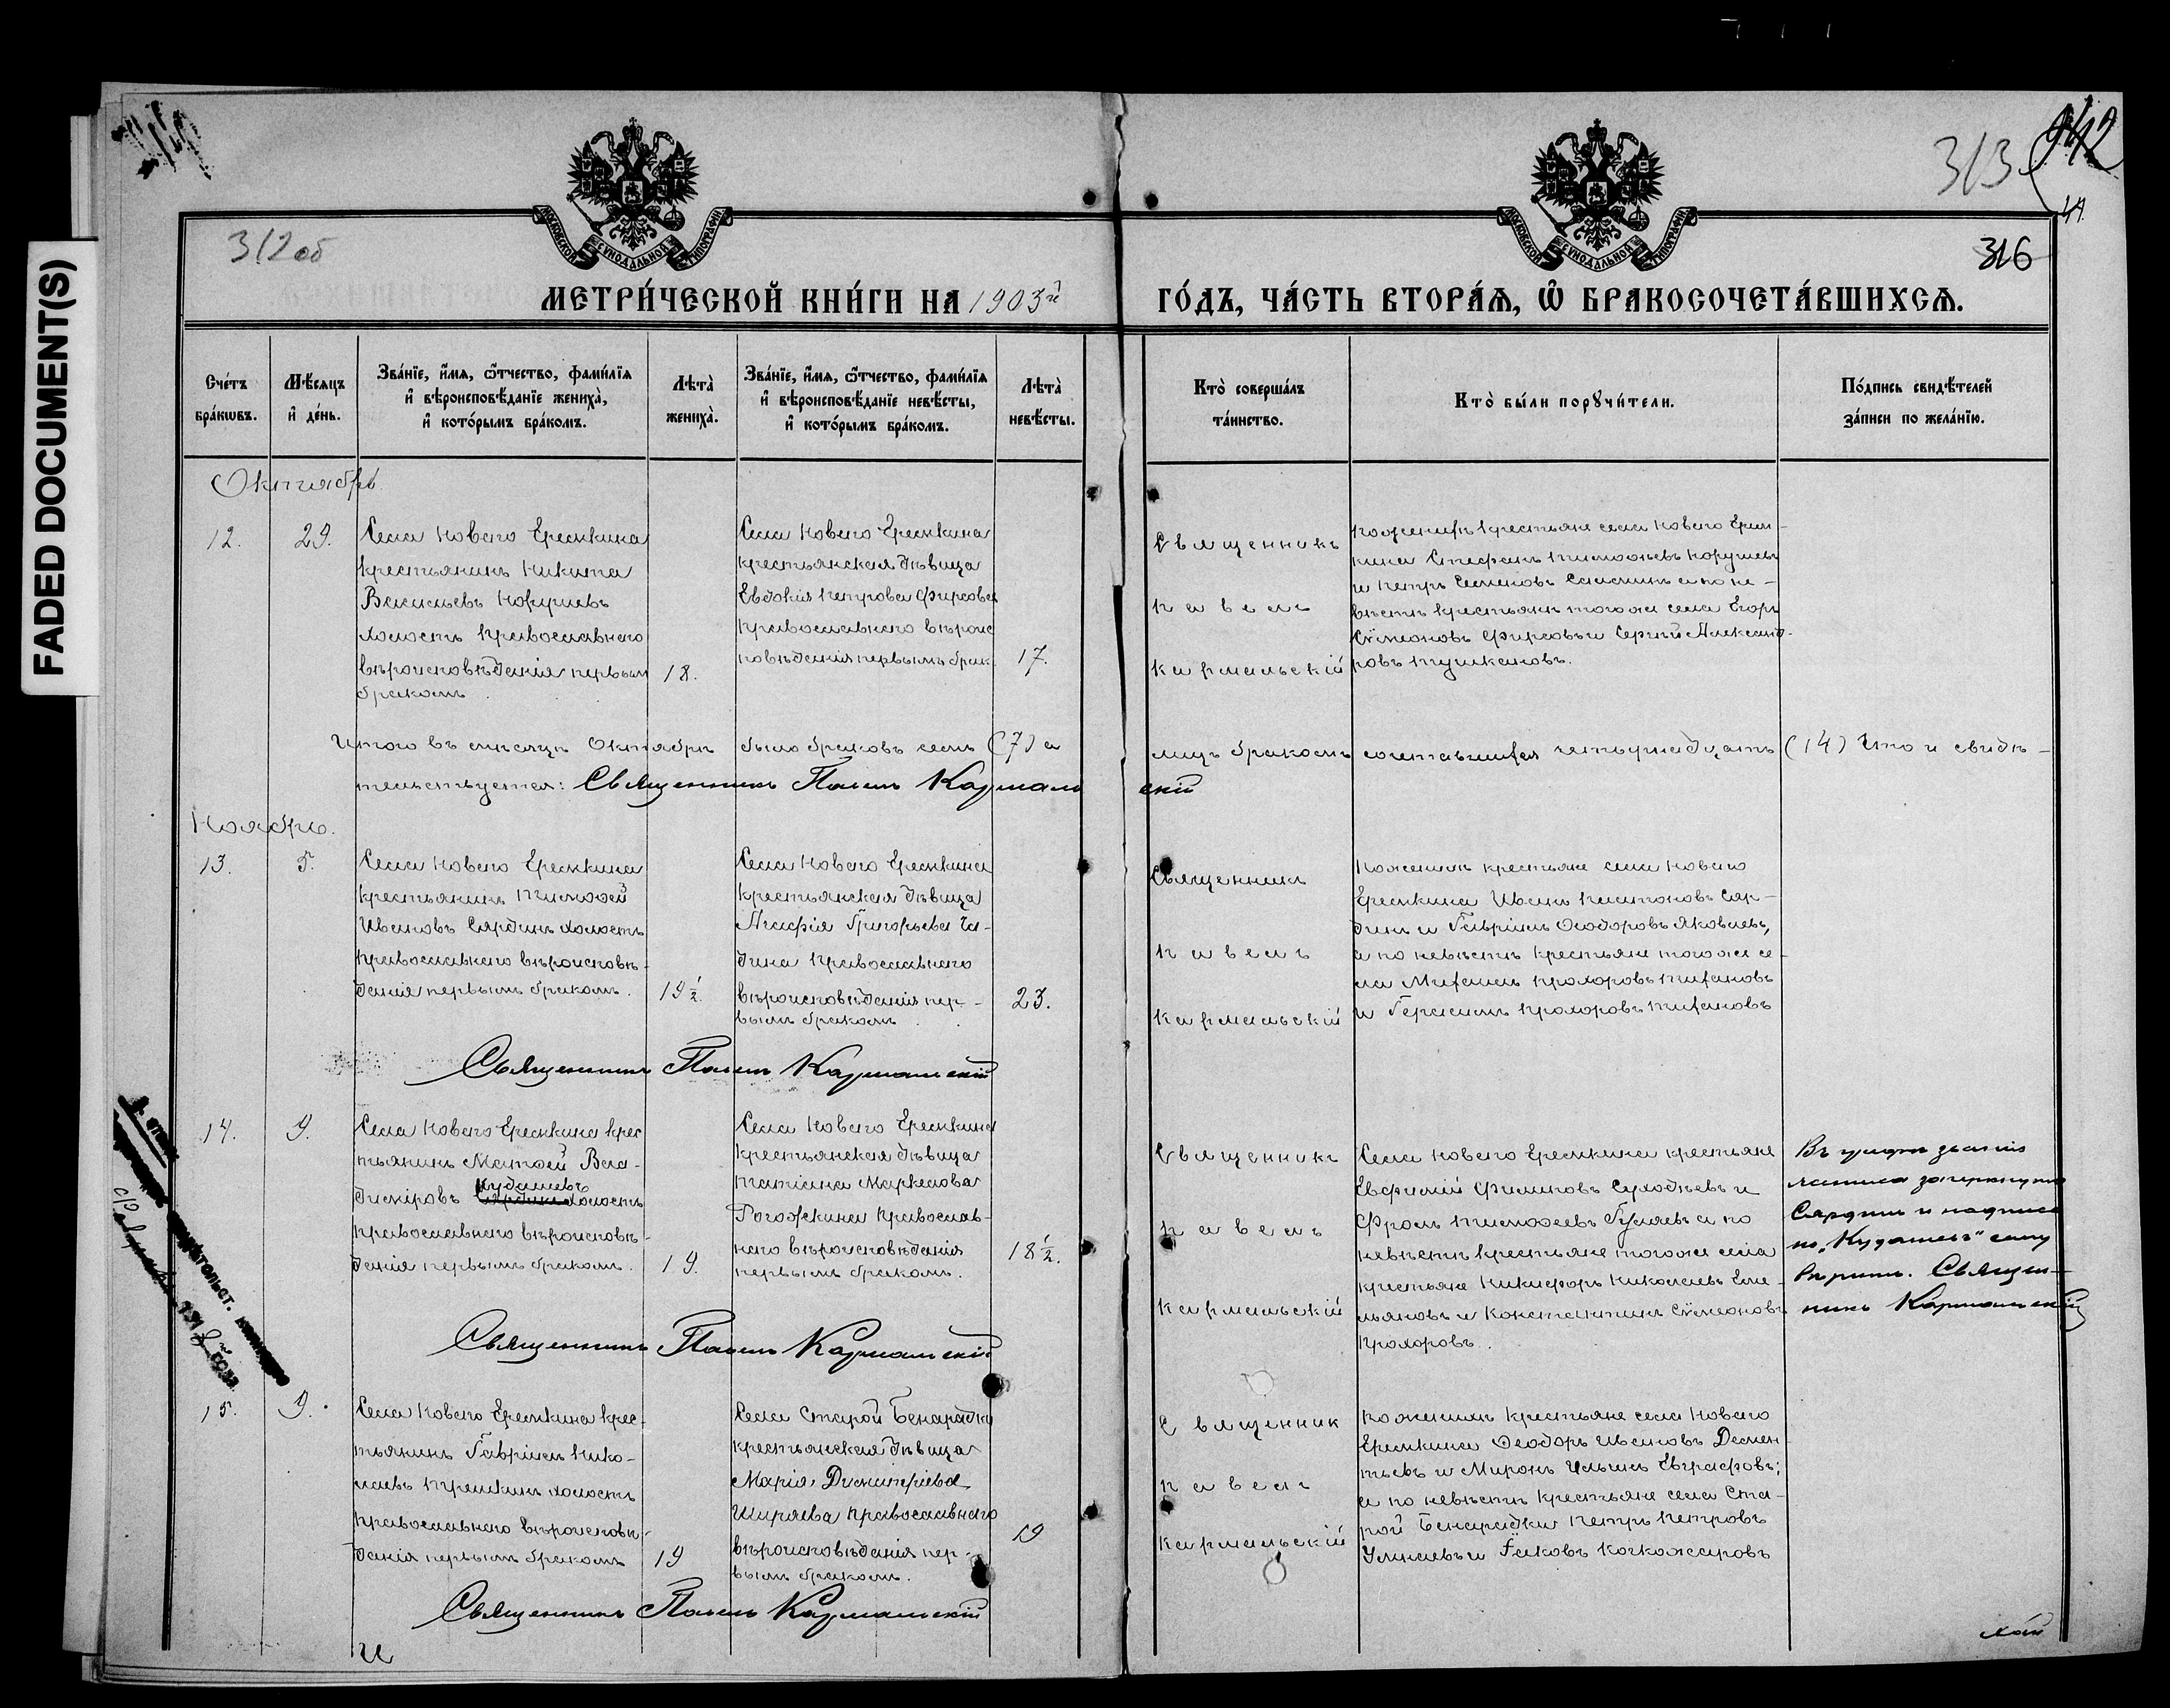 FADED DOCUMENT(S)
312об
313
316
МЕТРИ́ЧЕСКОЙ КНИ́ГИ НА 1903й ГО́ДЪ, ЧА́СТЬ ВТОРА́Я, Ѿ БРАКОСОЧЕТА́ВШИХСЯ.
МОСКОВСКОЙ СѴНОДАЛЬНОЙ ТИПОГРАФІИ
МОСКОВСКОЙ СѴНОДАЛЬНОЙ ТИПОГРАФІИ
Сче́тъ бра́кѡвъ.
Мѣ́сяцъ и҆ де́нь.
Зва́нїе, и҆́мя, ѻ҆́тчество, фами́лїя
и҆ вѣроисповѣ́данїе жениха̀,
и҆ кото́рымъ бра́комъ.
Лѣта̀ жениха̀.
Зва́нїе, и҆́мя, ѻ҆́тчество, фами́лїя
и҆ вѣроисповѣ́данїе невѣ́сты,
и҆ кото́рымъ бра́комъ.
Лѣта̀ невѣ́сты.
Кто̀ соверша́лъ та́инство.
Кто̀ бы́ли порꙋчи́тели.
По́дпись свидѣ́телей за́писи по жела́нїю.
Октябрь
12.
29.
Села Новаго Еремкина
крестьянинъ Никита
Васильевъ Норушевъ
холостъ православнаго
вѣроисповѣданія первым
бракомъ.
18.
Села Новаго Еремкина
крестьянская дѣвица
Евдокія Петрова Фирсова
православнаго вѣроис
повѣданія первымъ брак.
17.
Священникъ
Павелъ
Кармальскій
По женихѣ крестьяне села Новаго Ерем-
кина Стефанъ Тимофѣевъ Норушевъ
и Петръ Семеновъ а по не-
вѣстѣ крестьяне того же села Егоръ
Сѵмеоновъ Фирсовъ и Сергій Александ-
ровъ Пушкановъ.
Итого въ мѣсяцѣ Октябрѣ было браковъ семь (7) а лицъ бракомъ сочетавшихся четырнадцать (14) Что и свидѣ-
тельствуется: Священникъ Павелъ Кармальскій
Ноябрь.
13.
5.
Села Новаго Еремкина
крестьянинъ Тимофей
Ивановъ Сардинъ холостъ
православнаго вѣроисповѣ-
данія первымъ бракомъ.
19½.
Села Новаго Еремкина
крестьянская дѣвица
Агафія Григорьева Ча-
дина православнаго
вѣроисповѣданія пер-
вымъ бракомъ.
23.
Священникъ
Павелъ
Кармальскій
По женихѣ крестьяне села Новаго
Еремкина Иванъ Платоновъ Сар-
динъ и Гавріилъ Ѳеодоровъ Яковлевъ,
а по невѣстѣ крестьяне того же се-
ла Михаилъ Прохоровъ Тихановъ
и Герасимъ Прохоровъ Тихановъ
Священникъ Павелъ Кармальскій
14.
9.
Села Новаго Еремкина крес
тьянинъ Матѳей Вла-
диміровъ Кудашевъ холостъ
православнаго вѣроисповѣ-
данія первымъ бракомъ.
19.
Села Новаго Еремкина
крестьянская дѣвица
Татіана Маркелова
Рогожкина православ-
наго вѣроисповѣданія
первымъ бракомъ.
18½.
Священникъ
Павелъ
Кармальскій
Села Новаго Еремкина крестьяне
Евфимій Филиповъ Суходѣевъ и
Фролъ Тимофеевъ Гуляевъ а по
невѣстѣ крестьяне того же села
крестьяне Никифоръ Николаевъ Еме-
льяновъ и Константинъ Сѵмеоновъ
Прохоровъ.
Въ графѣ званія
жениха зачеркнуто
Сардинъ и надписа
но „Кудашевъ" сему
вѣрить. Священ-
никъ Кармальскій
Священникъ Павелъ Кармальскій
15.
9.
Села Новаго Еремкина крес-
тьянинъ Гавріилъ Нико-
лаевъ холостъ
православнаго вѣроисповѣ-
данія первымъ бракомъ
19
Села Старой Бинарадки
крестьянская дѣвица
Марія Димитріева
Ширяева православнаго
вѣроисповѣданія пер-
вымъ бракомъ.
19
Священник
Павелъ
Кармальскій
По женихѣ крестьяне села Новаго
Еремкина Ѳеодоръ Ивановъ Демен-
тьевъ и Миронъ Ильинъ Евграфовъ;
а по невѣстѣ крестьяне села Ста-
рой Бинарадки Петръ Петровъ
и Іаковъ
Священникъ Павелъ Кармальскій